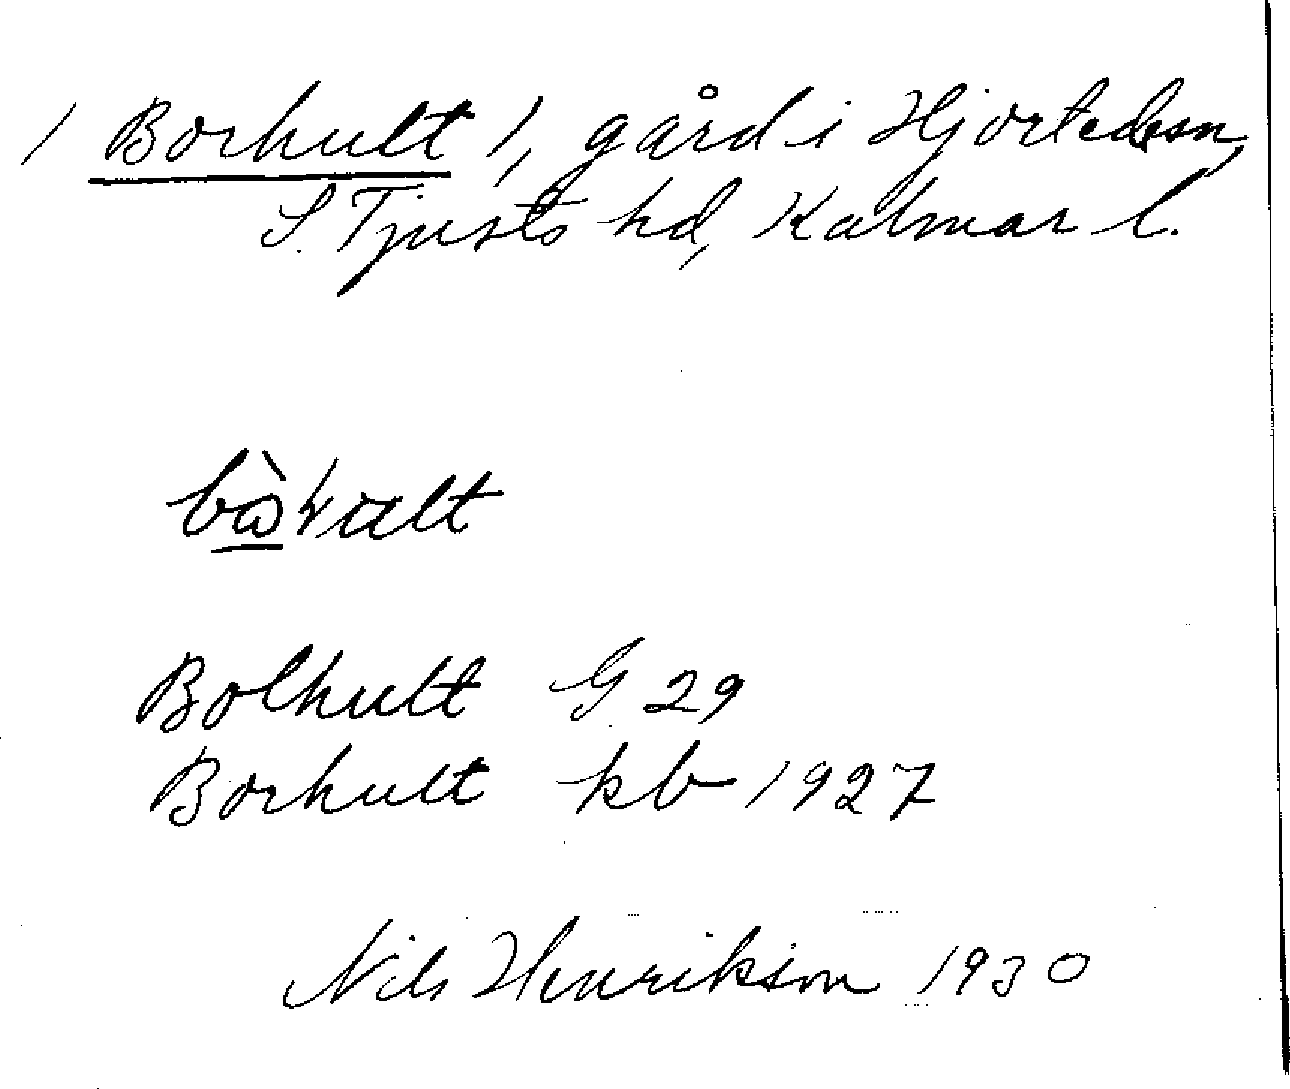 / Borhult /, gård i Hjorteds sn,
S. Tjusts hd, Kalmar l.
Bolhult G 29
Borhult kb 1927
Nils Henrikson 1930